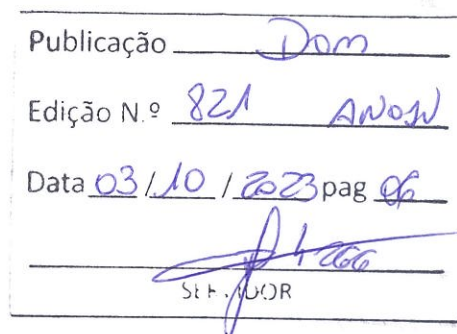 Publicação Dom
Edição N.º 821 ANO IV
Data 03 / 10 / 2023 pag 06
SERVIDOR